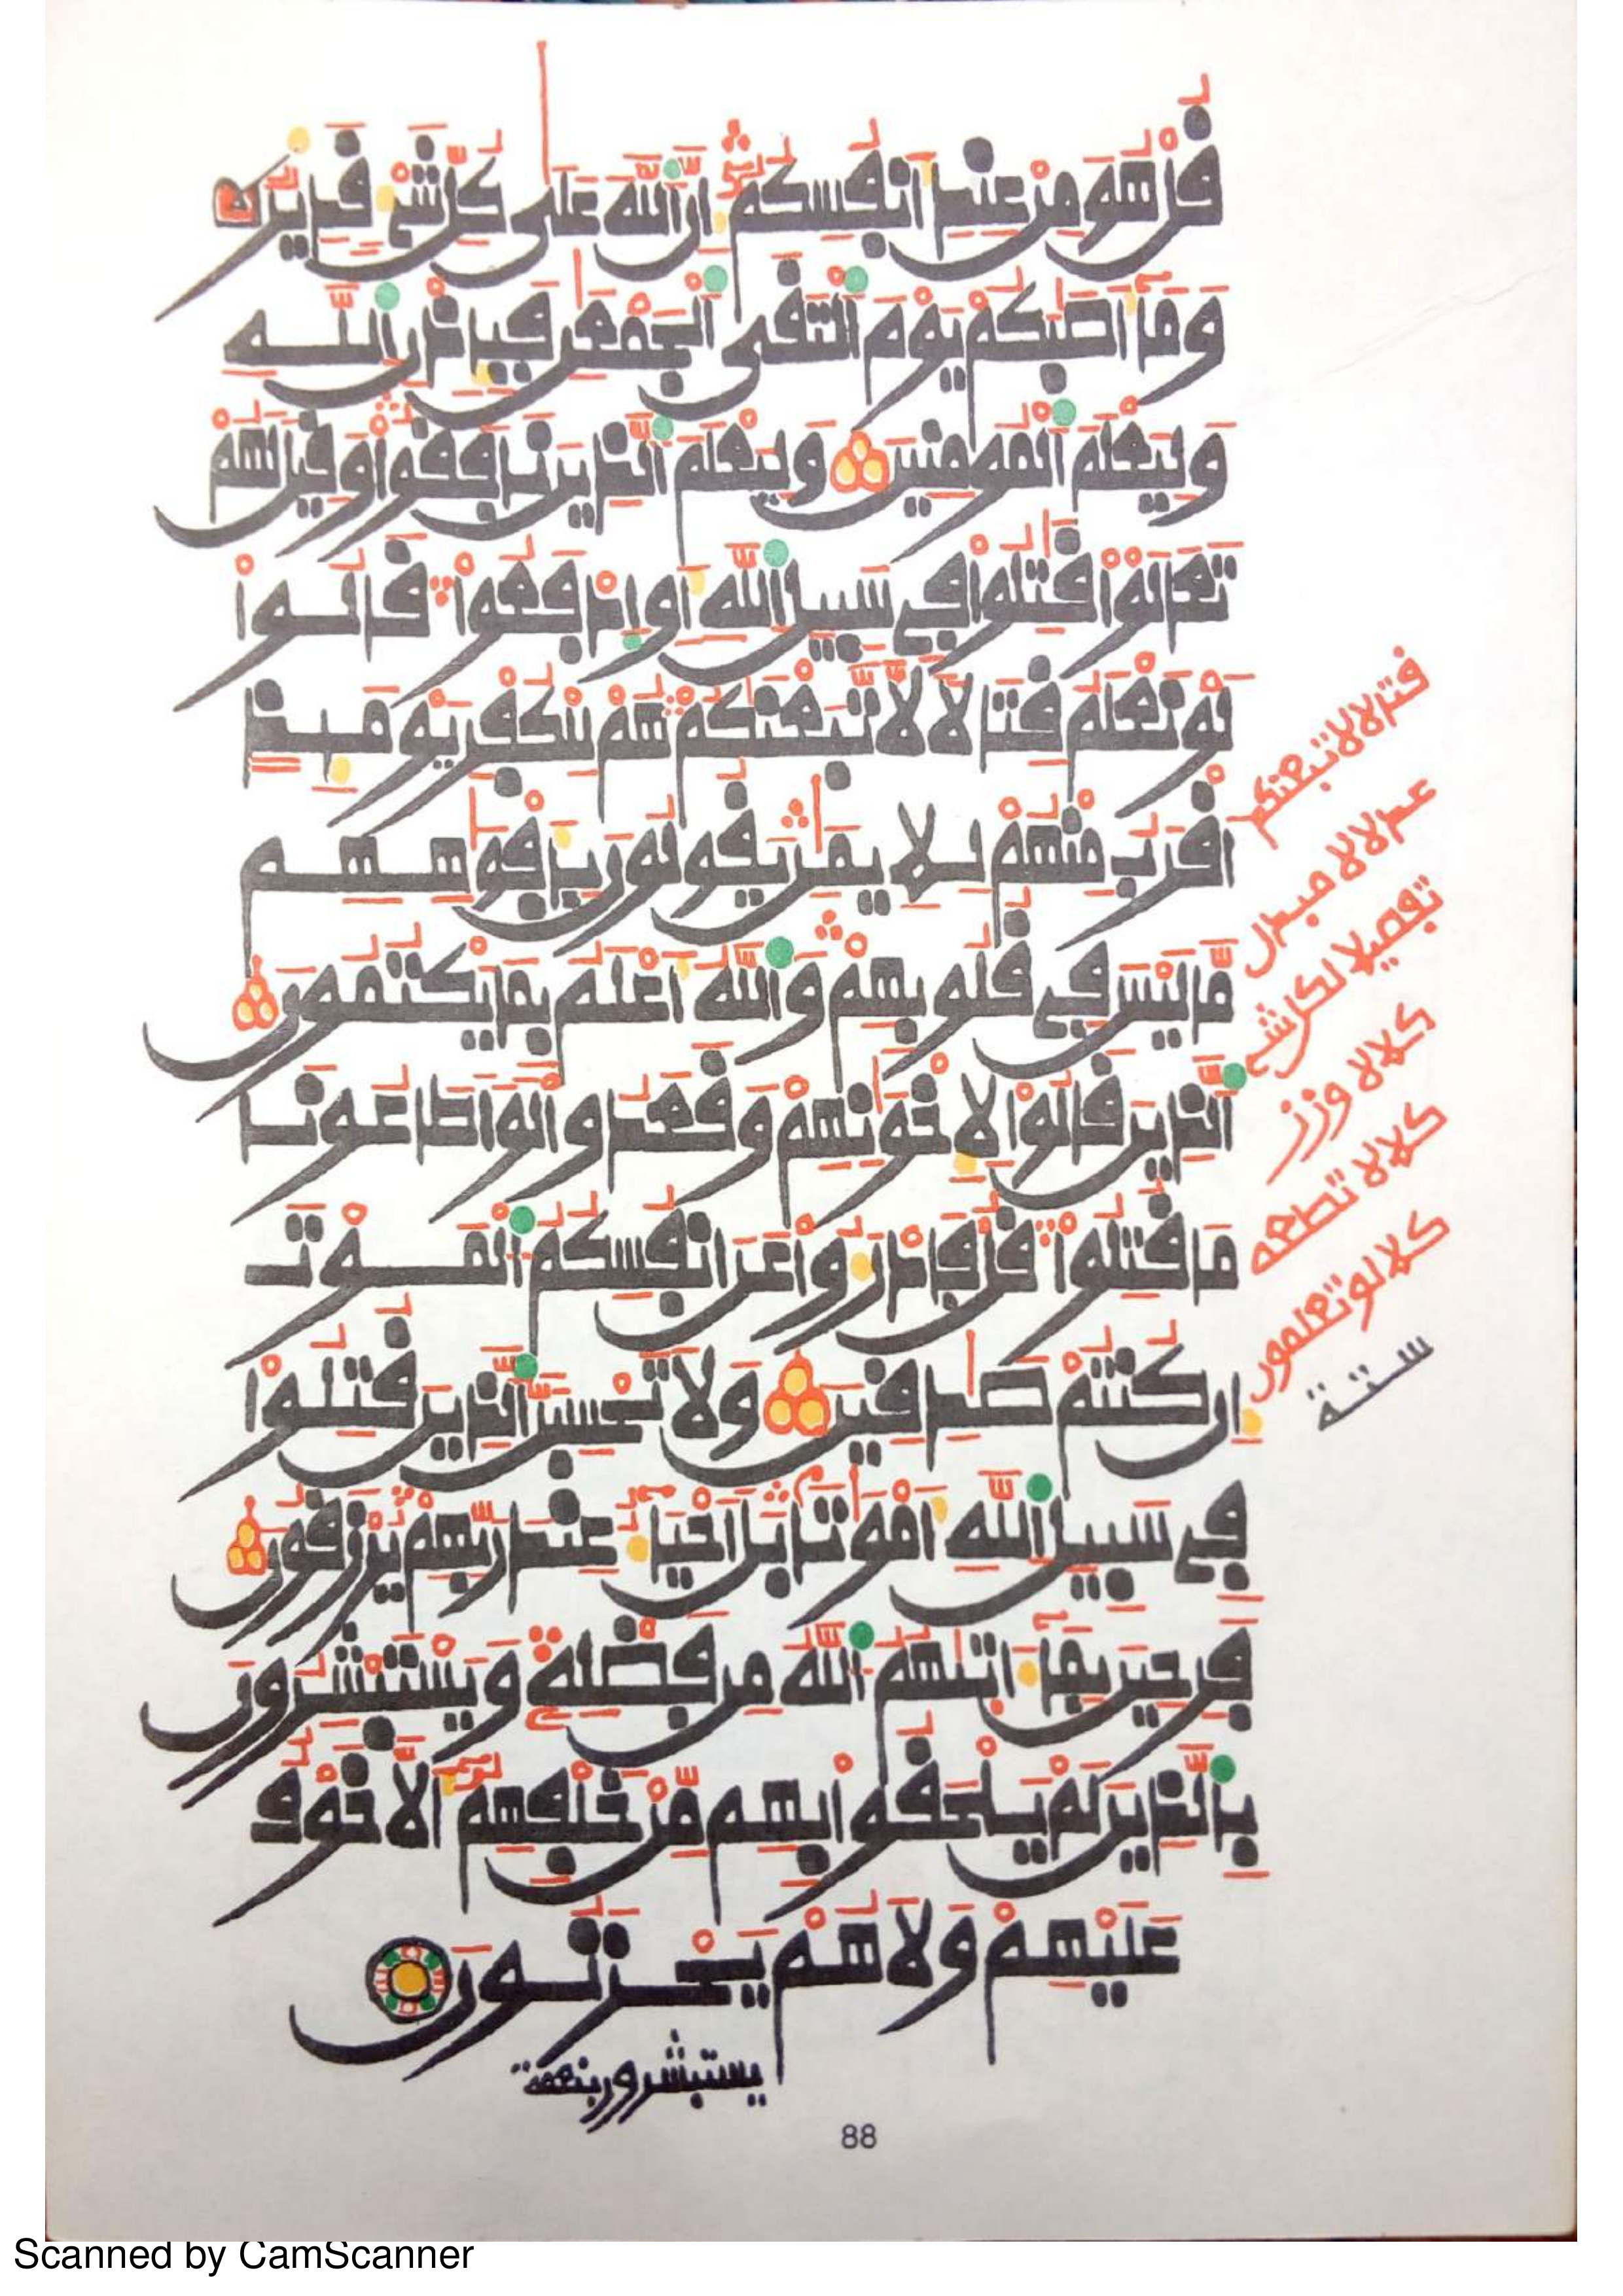 قُلْ هُوَ مِنْ عِندِ أَنفُسِكُمُۥٓ إِنَّ ٱللَّهَ عَلَىٰ كُلِّ شَيْءٖ قَدِيرٞ
وَمَآ أَصَٰبَكُمْ يَوْمَ ٱلْتَقَى ٱلْجَمْعَٰنِ فَبِإِذْنِ ٱللَّهِ
وَلِيَعْلَمَ ٱلْمُومِنِينَ وَلِيَعْلَمَ ٱلذِينَ نَافَقُواْ وَقِيلَ لَهُمْ
تَعَالَوْاْ قَٰتِلُواْ فِي سَبِيلِ ٱللَّهِ أَوِ ٱدْفَعُواْ قَالُواْ
لَوْ نَعْلَمُ قِتَالًا لَّاتَّبَعْنَٰكُمْ هُمْ لِلْكُفْرِ يَوْمَئِذٍ
أَقْرَبُ مِنْهُمْ لِلِايمَٰنِ يَقُولُونَ بِأَفْوَٰهِهِم
مَّا لَيْسَ فِي قُلُوبِهِمْ وَٱللَّهُ أَعْلَمُ بِمَا يَكْتُمُونَ
ٱلذِينَ قَالُواْ لِإِخْوَٰنِهِمْ وَقَعَدُواْ لَوَ اطَاعُونَا
مَا قُتِلُواْ قُلْ فَادْرَءُواْ عَنَ انفُسِكُمُ ٱلْمَوْتَ
إِن كُنتُمْ صَٰدِقِينَ وَلَا تَحْسِبَنَّ ٱلذِينَ قُتِلُواْ
فِي سَبِيلِ ٱللَّهِ أَمْوَٰتَاۢ بَلَ احْيَآءٌ عِندَ رَبِّهِمْ يُرْزَقُونَ
فَرِحِينَ بِمَآ ءَاتَىٰهُمُ ٱللَّهُ مِن فَضْلِهِۦ وَيَسْتَبْشِرُونَ
بِالذِينَ لَمْ يَلْحَقُواْ بِهِم مِّنْ خَلْفِهِمُۥٓ أَلَّا خَوْفٌ
عَلَيْهِمْ وَلَا هُمْ يَحْزَنُونَ
يستبشرون بنعمة
قتالا لاتبعنكم
عدلا لا مبدل
تفصيلا لكل شي
كلا لا وزر
كلا لا تطعه
كلا لو تعلمون
ستة
88
Scanned by CamScanner